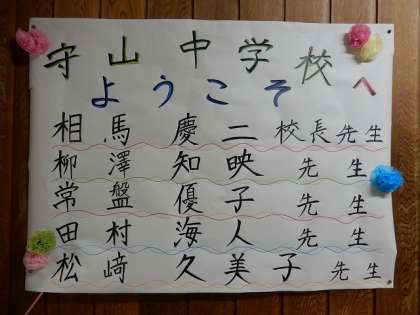 守山中学校へ
ようこそ
相馬慶二校長先生
柳澤知映先生
常盤優子先生
田村海人先生
松﨑久美子先生